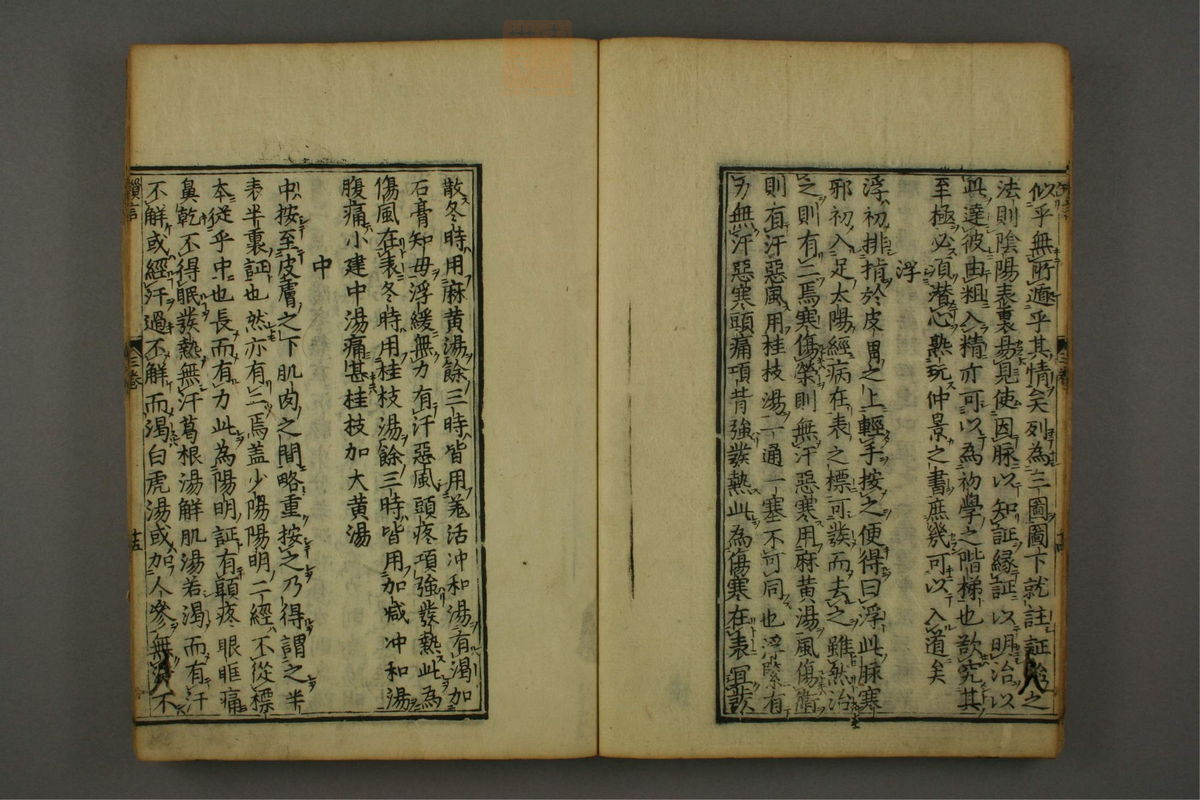 似乎無所遁乎其情矣列為三圖圖下就註証治之
法則陰陽表裏易見使因脉以知証縁証以明治以
此達彼由粗入精亦可以為初学之階梯也欲究其
至極必須潜心熟玩仲景之書庶幾可以入道矣
浮
浮初排指於皮膚之上輕手按之便得曰浮此脉寒
邪初入足太陽經病在表之標可發而去之雖然治
之則有二焉寒傷榮則無汗惡寒用麻黄湯風傷衛
則有汗惡風用桂枝湯一通一塞不可同也浮緊有
力無汗惡寒頭痛項背強發熱此為傷寒在表宜發
散冬時用麻黄湯餘三時皆用羗活冲和湯有渴加
石膏知母浮緩無力有汗惡風頭疼項強發熱此為
傷風在表冬時用桂枝湯餘三時皆用加减冲和湯
腹痛小建中湯痛甚桂枝加大黄湯
中
中按至皮膚之下肌肉之間略重按之乃得謂之半
表半裏証也然亦有二焉盖少陽陽明二經不從標
本從乎中也長而有力此為陽明証有頭疼眼眶痛
鼻乾不得眠發熱無汗葛根湯解肌湯若渴而有汗
不解或經汗過不解而渴白虎湯或加人參無不